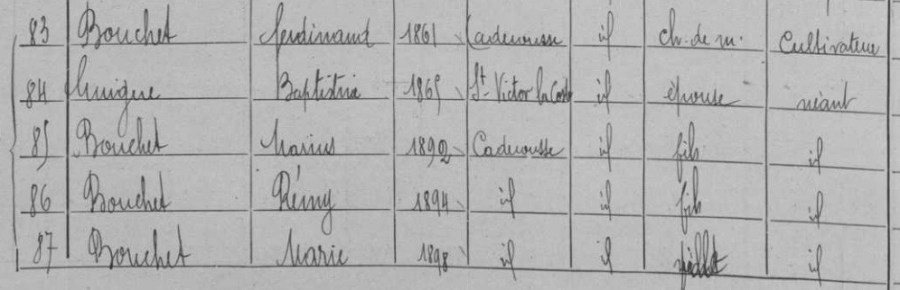 83 Bouchet Ferdinand 1861 Caderousse il ch. de m. Cultivateur
84 Baptistine 1865 St Victor la Coste il épouse néant
85 Bouchet Marius 1892 Caderousse il fils il
86 Bouchet Rémy 1894 il il fils il
87 Bouchet Marie 1898 il il il